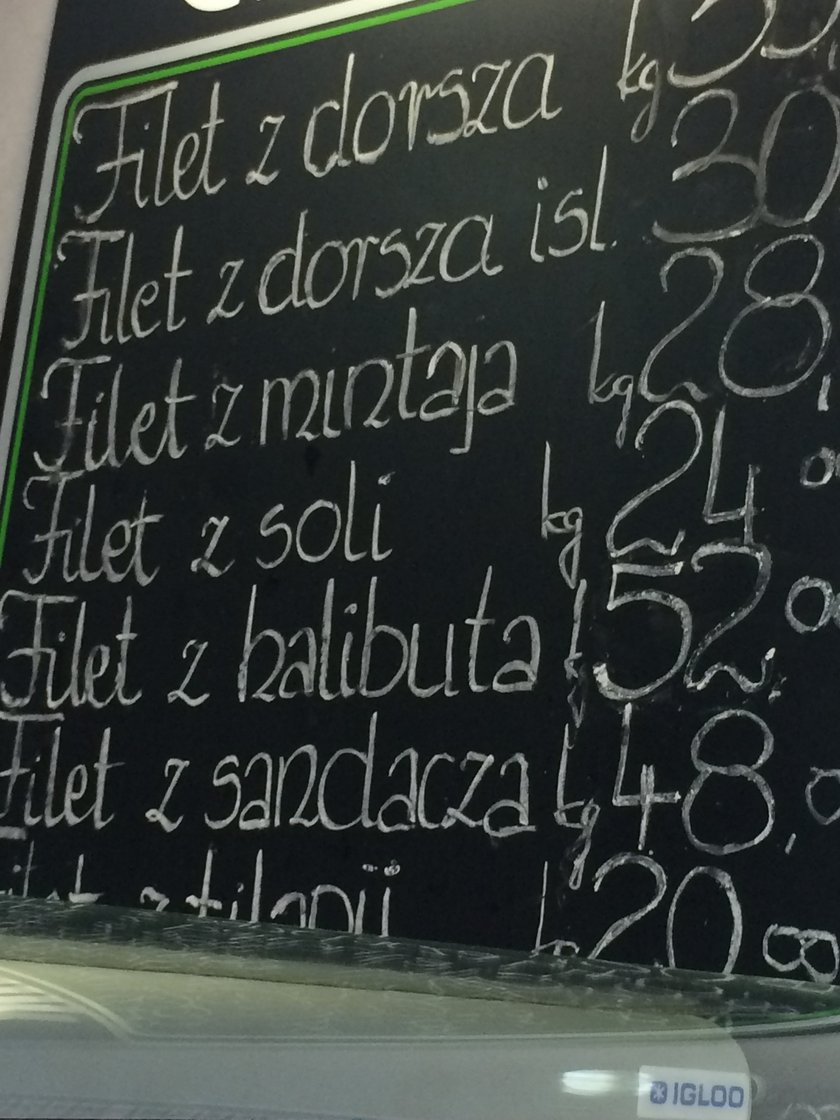 Filet z dorsza kg
Filet z dorsza isl. 30
Filet z mintaja kg 28,
Filet z soli kg 24
Filet z halibuta kg 52
Filet z sandacza kg 48,
Filet z tilapii kg 20
IGLOO